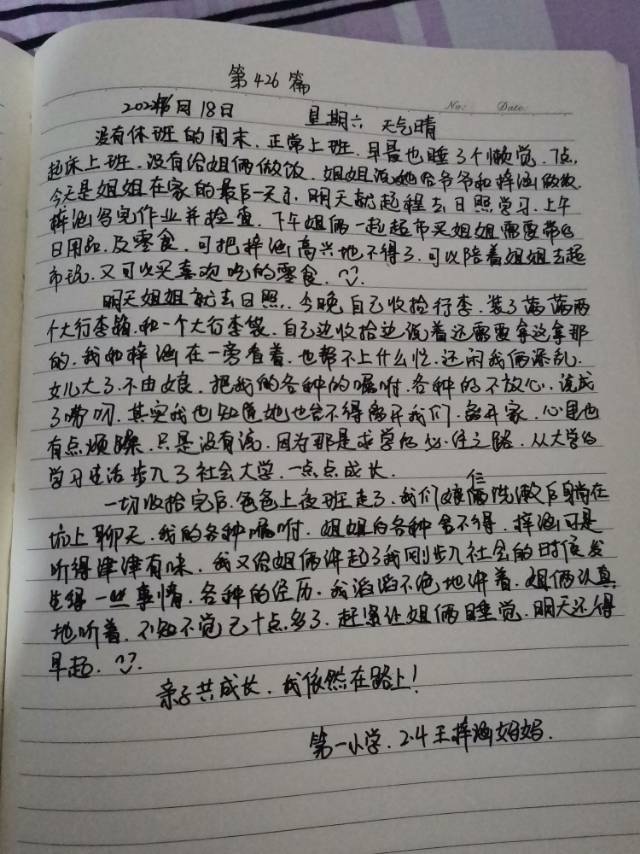 第426篇
No: Date:
202 月18日 星期六 天气晴
没有休班的周末.正常上班.早晨也睡了个懒觉.7点.
起床上班.没有给姐俩做饭.姐姐说她给爷爷和梓涵做饭.
今天是姐姐在家的最后一天了.明天就起程去日照学习.上午
梓涵写完作业并检查.下午姐俩一起超市买姐姐需要带的
日用品.及零食.可把梓涵高兴地不得了.可以陪着姐姐去超
市玩.又可以买喜欢吃的零食.
明天姐姐就去日照.今晚自己收捡行李.装了满满两
个大行李箱.和一个大行李袋.自己边收拾边说着还需要拿这拿那
的.我和梓涵在一旁看着.也帮不上什么忙.还闲我俩添乱.
女儿大了.不由娘.把我的各种的嘱咐.各种的不放心.说成
了唠叨.其实我也知道她也舍不得离开我们.离开家.心里也
有点烦躁.只是没有说.因为那是求学的必经之路.从大学的
学习生活步入了社会大学.一点点成长.
一切收拾完后.爸爸上夜班走了.我们娘仨洗漱后躺在
炕上聊天.我的各种嘱咐.姐姐的各种舍不得.梓涵可是
听得津津有味.我又给姐俩讲起了我刚步入社会的时候发
生得一些事情.各种的经历.我滔滔不绝地讲着.姐俩认真
地听着.不知不觉已十点多了.赶紧让姐俩睡觉.明天还得
早起.
亲子共成长.我依然在路上!
第一小学.2.4王梓涵妈妈.